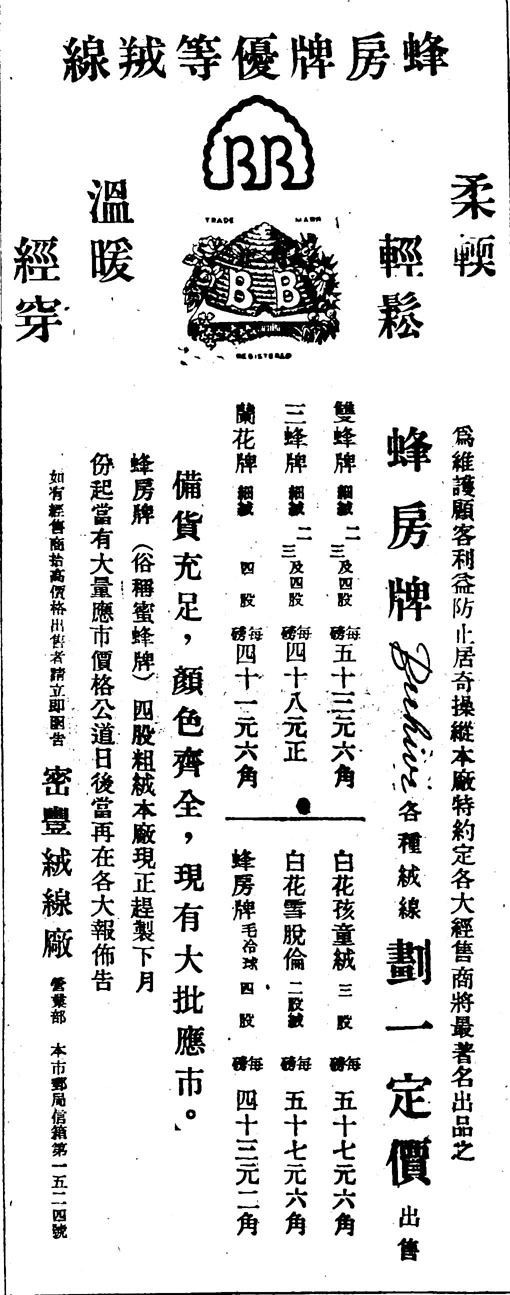 蜂房牌優等羢線
BB
TRADE MARK
B B
REGISTERED
柔輭
輕鬆
溫暖
經穿
爲維護顧客利益防止居奇操縱本廠特約定各大經售商將最著名出品之
蜂房牌 Beehive 各種絨線 劃一定價 出售
雙蜂牌 細絨 二三及四股 每磅 五十三元六角
三蜂牌 細絨 二三及四股 每磅 四十八元正
蘭花牌 細絨 四股 每磅 四十一元六角
白花孩童絨 三股 每磅 五十七元六角
白花雪脫倫 二股絨 每磅 五十七元六角
蜂房牌 毛冷球 四股 每磅 四十三元二角
備貨充足，顏色齊全，現有大批應市。
蜂房牌（俗稱蜜蜂牌）四股粗絨本廠現正趕製下月
份起當有大量應市價格公道日後當再在各大報佈告
如有經售商抬高價格出售者請立即函告 密豐絨線廠 營業部 本市郵局信箱第一五二四號